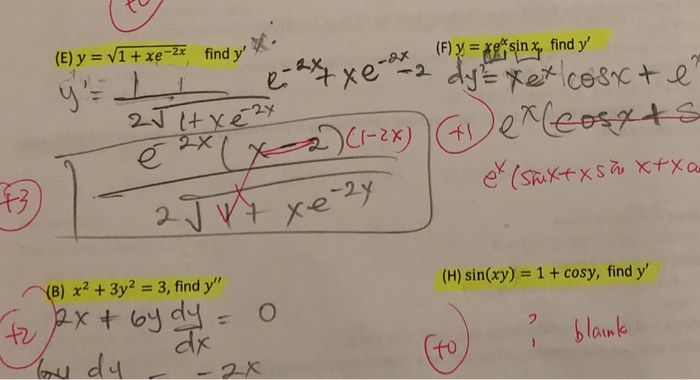 +0
(E) y = √1 + xe^-2x find y'
y' = 1 / 2√1+xe^-2x e^-2x + xe^-2x -2
e^-2x (x-2) (1-2x)
2√1+xe^-2x
+3
(F) y = xe^x sin x, find y'
dy = xe^x cosx + e^x
+1
e^x (cosx + s
e^x (sinx + x sin x + x co
(B) x² + 3y² = 3, find y''
+2
2x + 6y dy/dx = 0
6y dy = -2x
(H) sin(xy) = 1 + cosy, find y'
+0
? blank